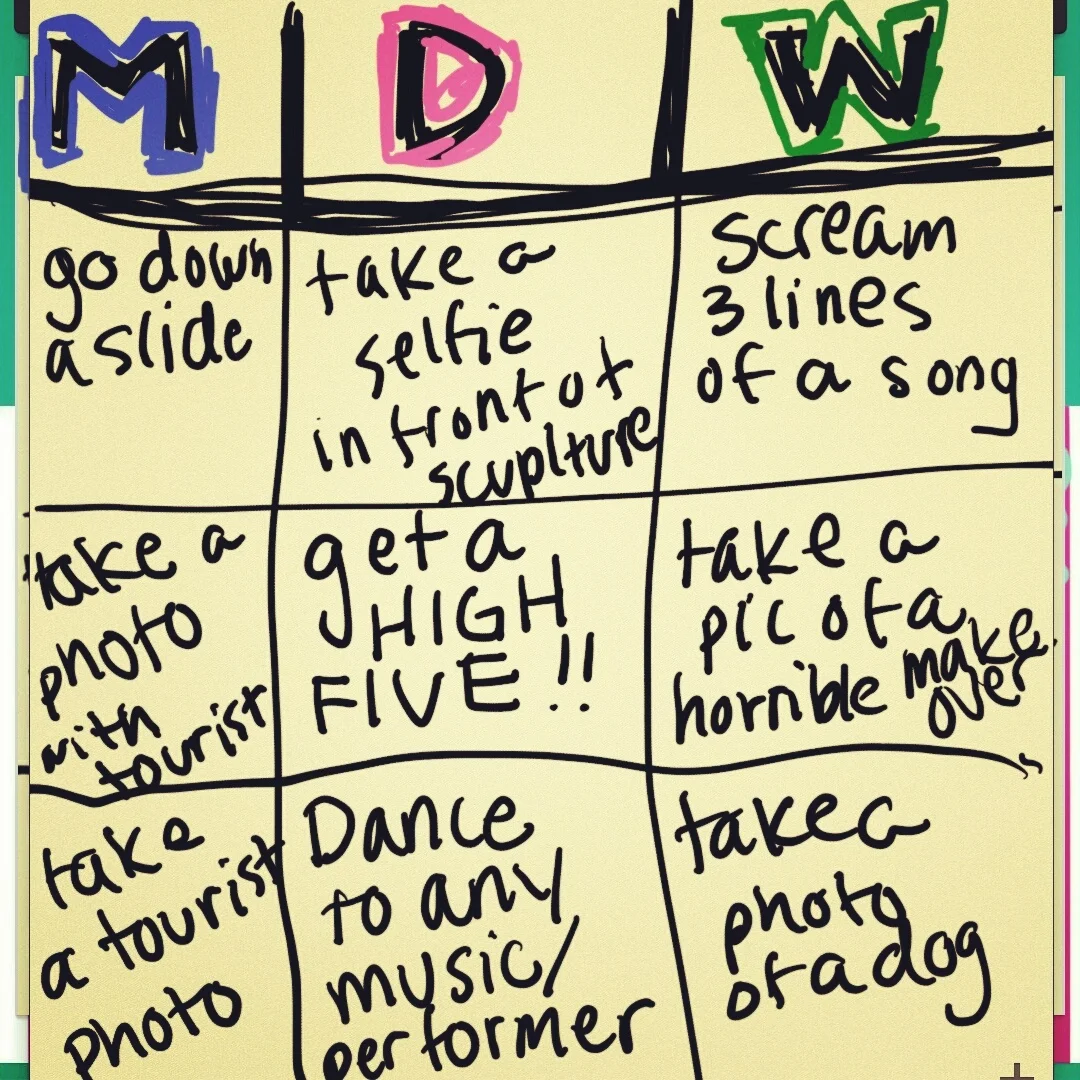 M D W
go down
a slide
take a
selfie
in front of
scuplture
scream
3 lines
of a song
take a
photo
with
tourist
get a
HIGH
FIVE!!
take a
pic of a
horrible make
over
take
a tourist
photo
Dance
to any
music/
performer
take a
photo
of a dog